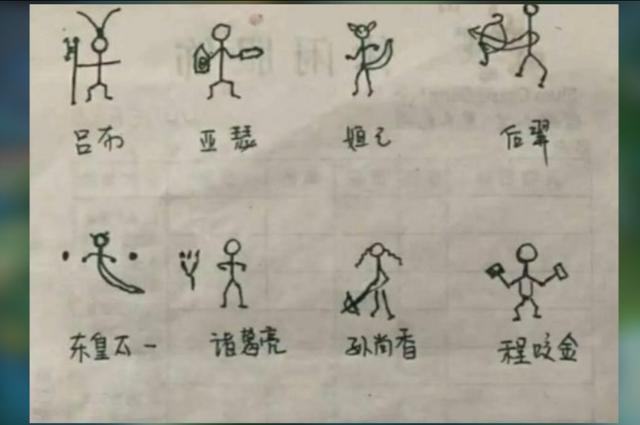 吕布 亚瑟 妲己 后羿
东皇太一 诸葛亮 孙尚香 程咬金